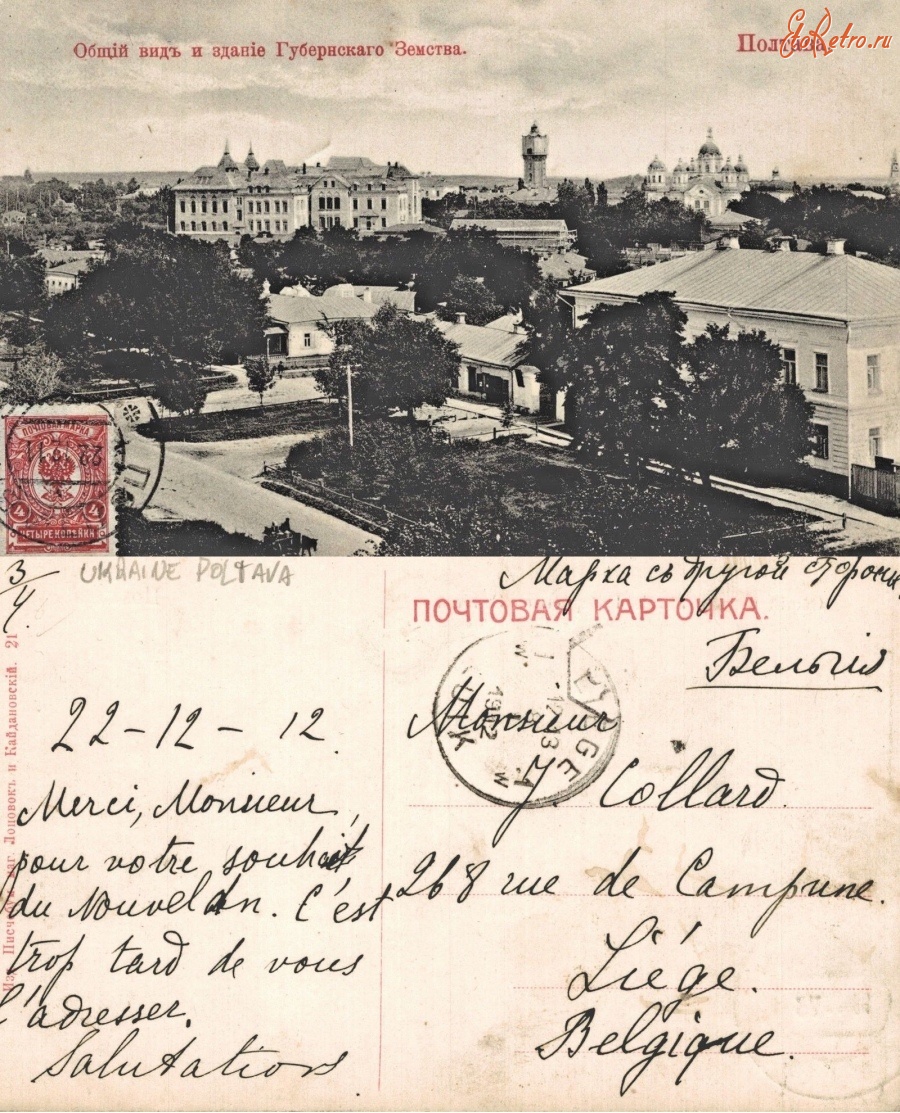 Общій видъ и зданіе Губернскаго Земства.
Полтава.
EtoRetro.ru
ПОЧТОВАЯ МАРКА
4 4
ЧЕТЫРЕ КОПѢЙКИ
3/4.
UKRAINE POLTAVA
Марка съ другой стороны
ПОЧТОВАЯ КАРТОЧКА.
Бельгія
22-12-12.
Merci, Monsieur,
pour votre souhait
du Nouvel An. C'est
trop tard de vous
l'adresser.
Salutations
Monsieur
J. Collard.
268 rue de Campine.
Liége.
Belgique.
Изд. Писчеб. маг. Лоповокъ и Кайдановскій. 21